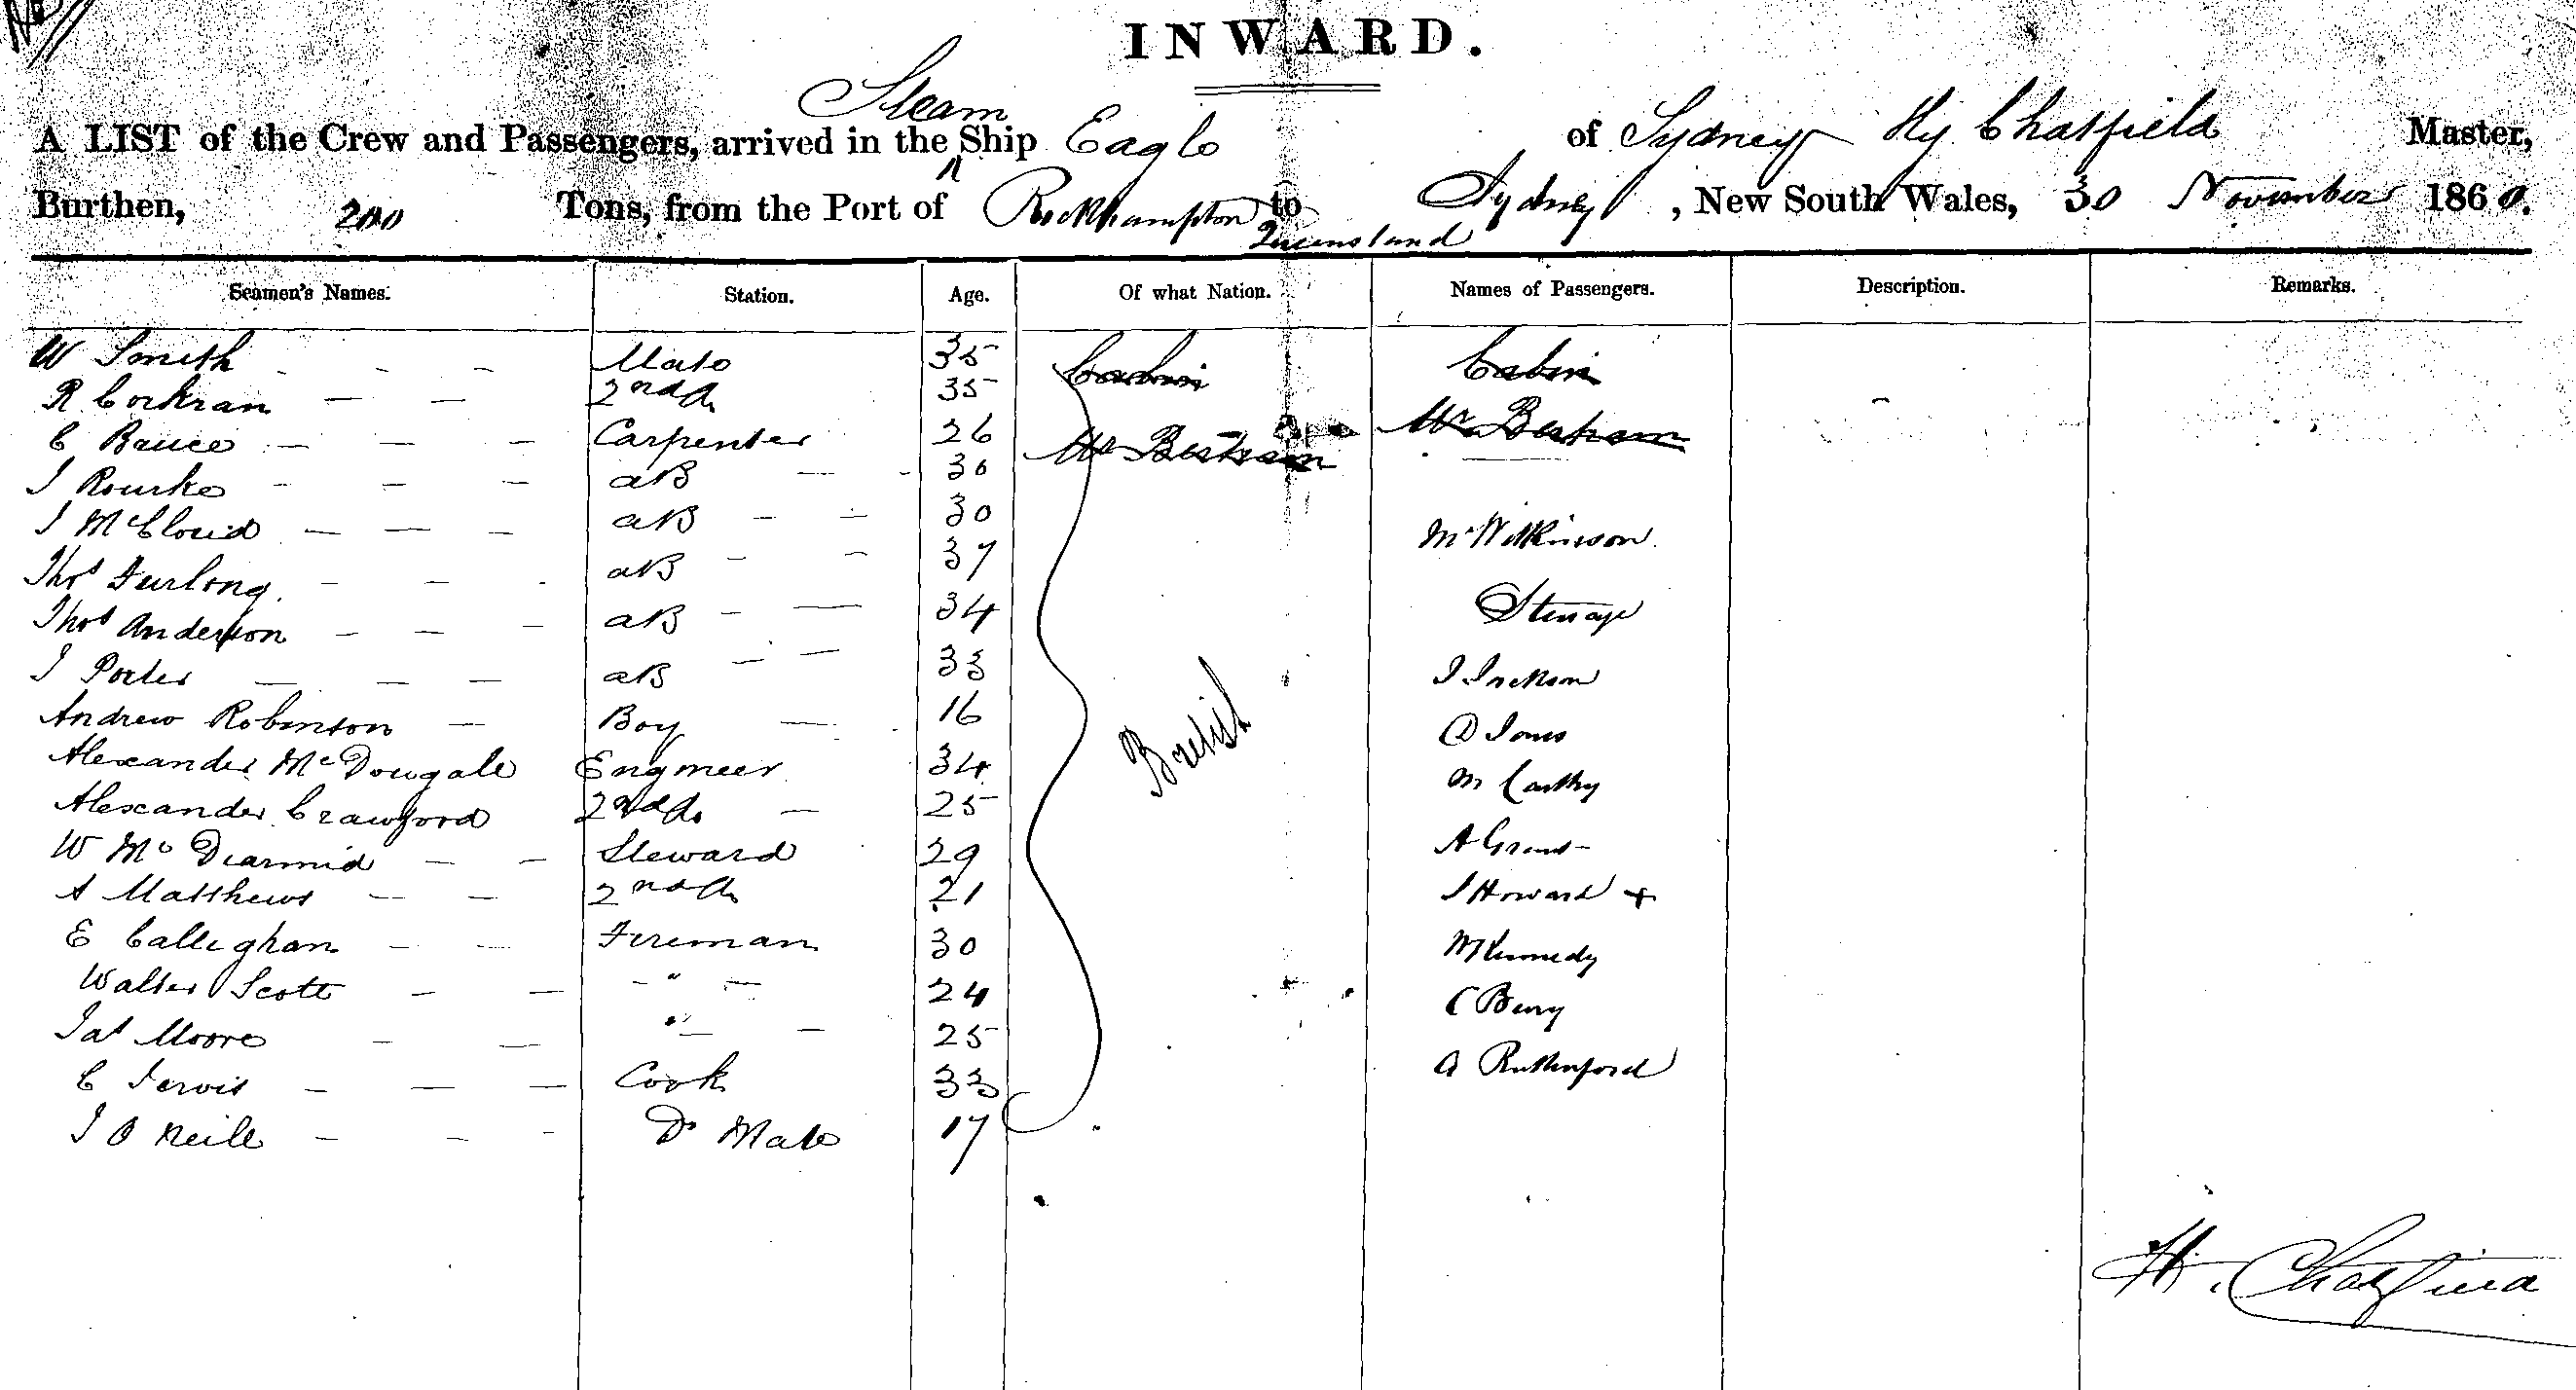 INWARD.
Steam
A LIST of the Crew and Passengers, arrived in the Ship Eagle of Sydney Hy Chatfield Master,
Burthen, 200 Tons, from the Port of Rockhampton to Sydney, New South Wales, 30 November 1860.
Queensland
Seamen's Names. Station. Age. Of what Nation. Names of Passengers. Description. Remarks.
W Smith - - - Mate 35 Cabin Cabin
R Corkran - - 2nd Do 35
C Bruce - - - Carpenter 26 Mr Bertram Mr Bertram
J Rourke - - - aB - - 30
J McCloud - - - aB - - 30 Mr Wilkinson
Thos Furlong - - - aB - - 37
Thos Anderson - - - aB - - 34 Steerage
J Porter - - - aB - - 33 J Jackson
Andrew Robinson - Boy - 16 D Jones
Alexander McDougall Engineer 34 British M Carthy
Alexander Crawford 2nd Do - 25
W McDiarmid - - Steward 29 A Grant
A Matthews - - 2nd Do 21 J Howard +
E Calleghan - - Fireman 30 M Kennedy
Walter Scott - - - " - 24 C Bury
Jas Moore - - " - 25
C Jervis - - - Cook 33 A Rutherford
J O Neill - - - Do Mate 17
H. Chatfield